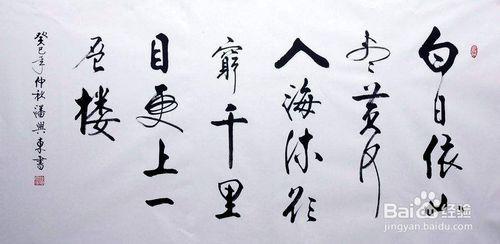 白日依山
尽黄河
入海流欲
穷千里
目更上一
层楼
癸巳年仲秋潘兴东书
Bai度经验
jingyan.baidu.com